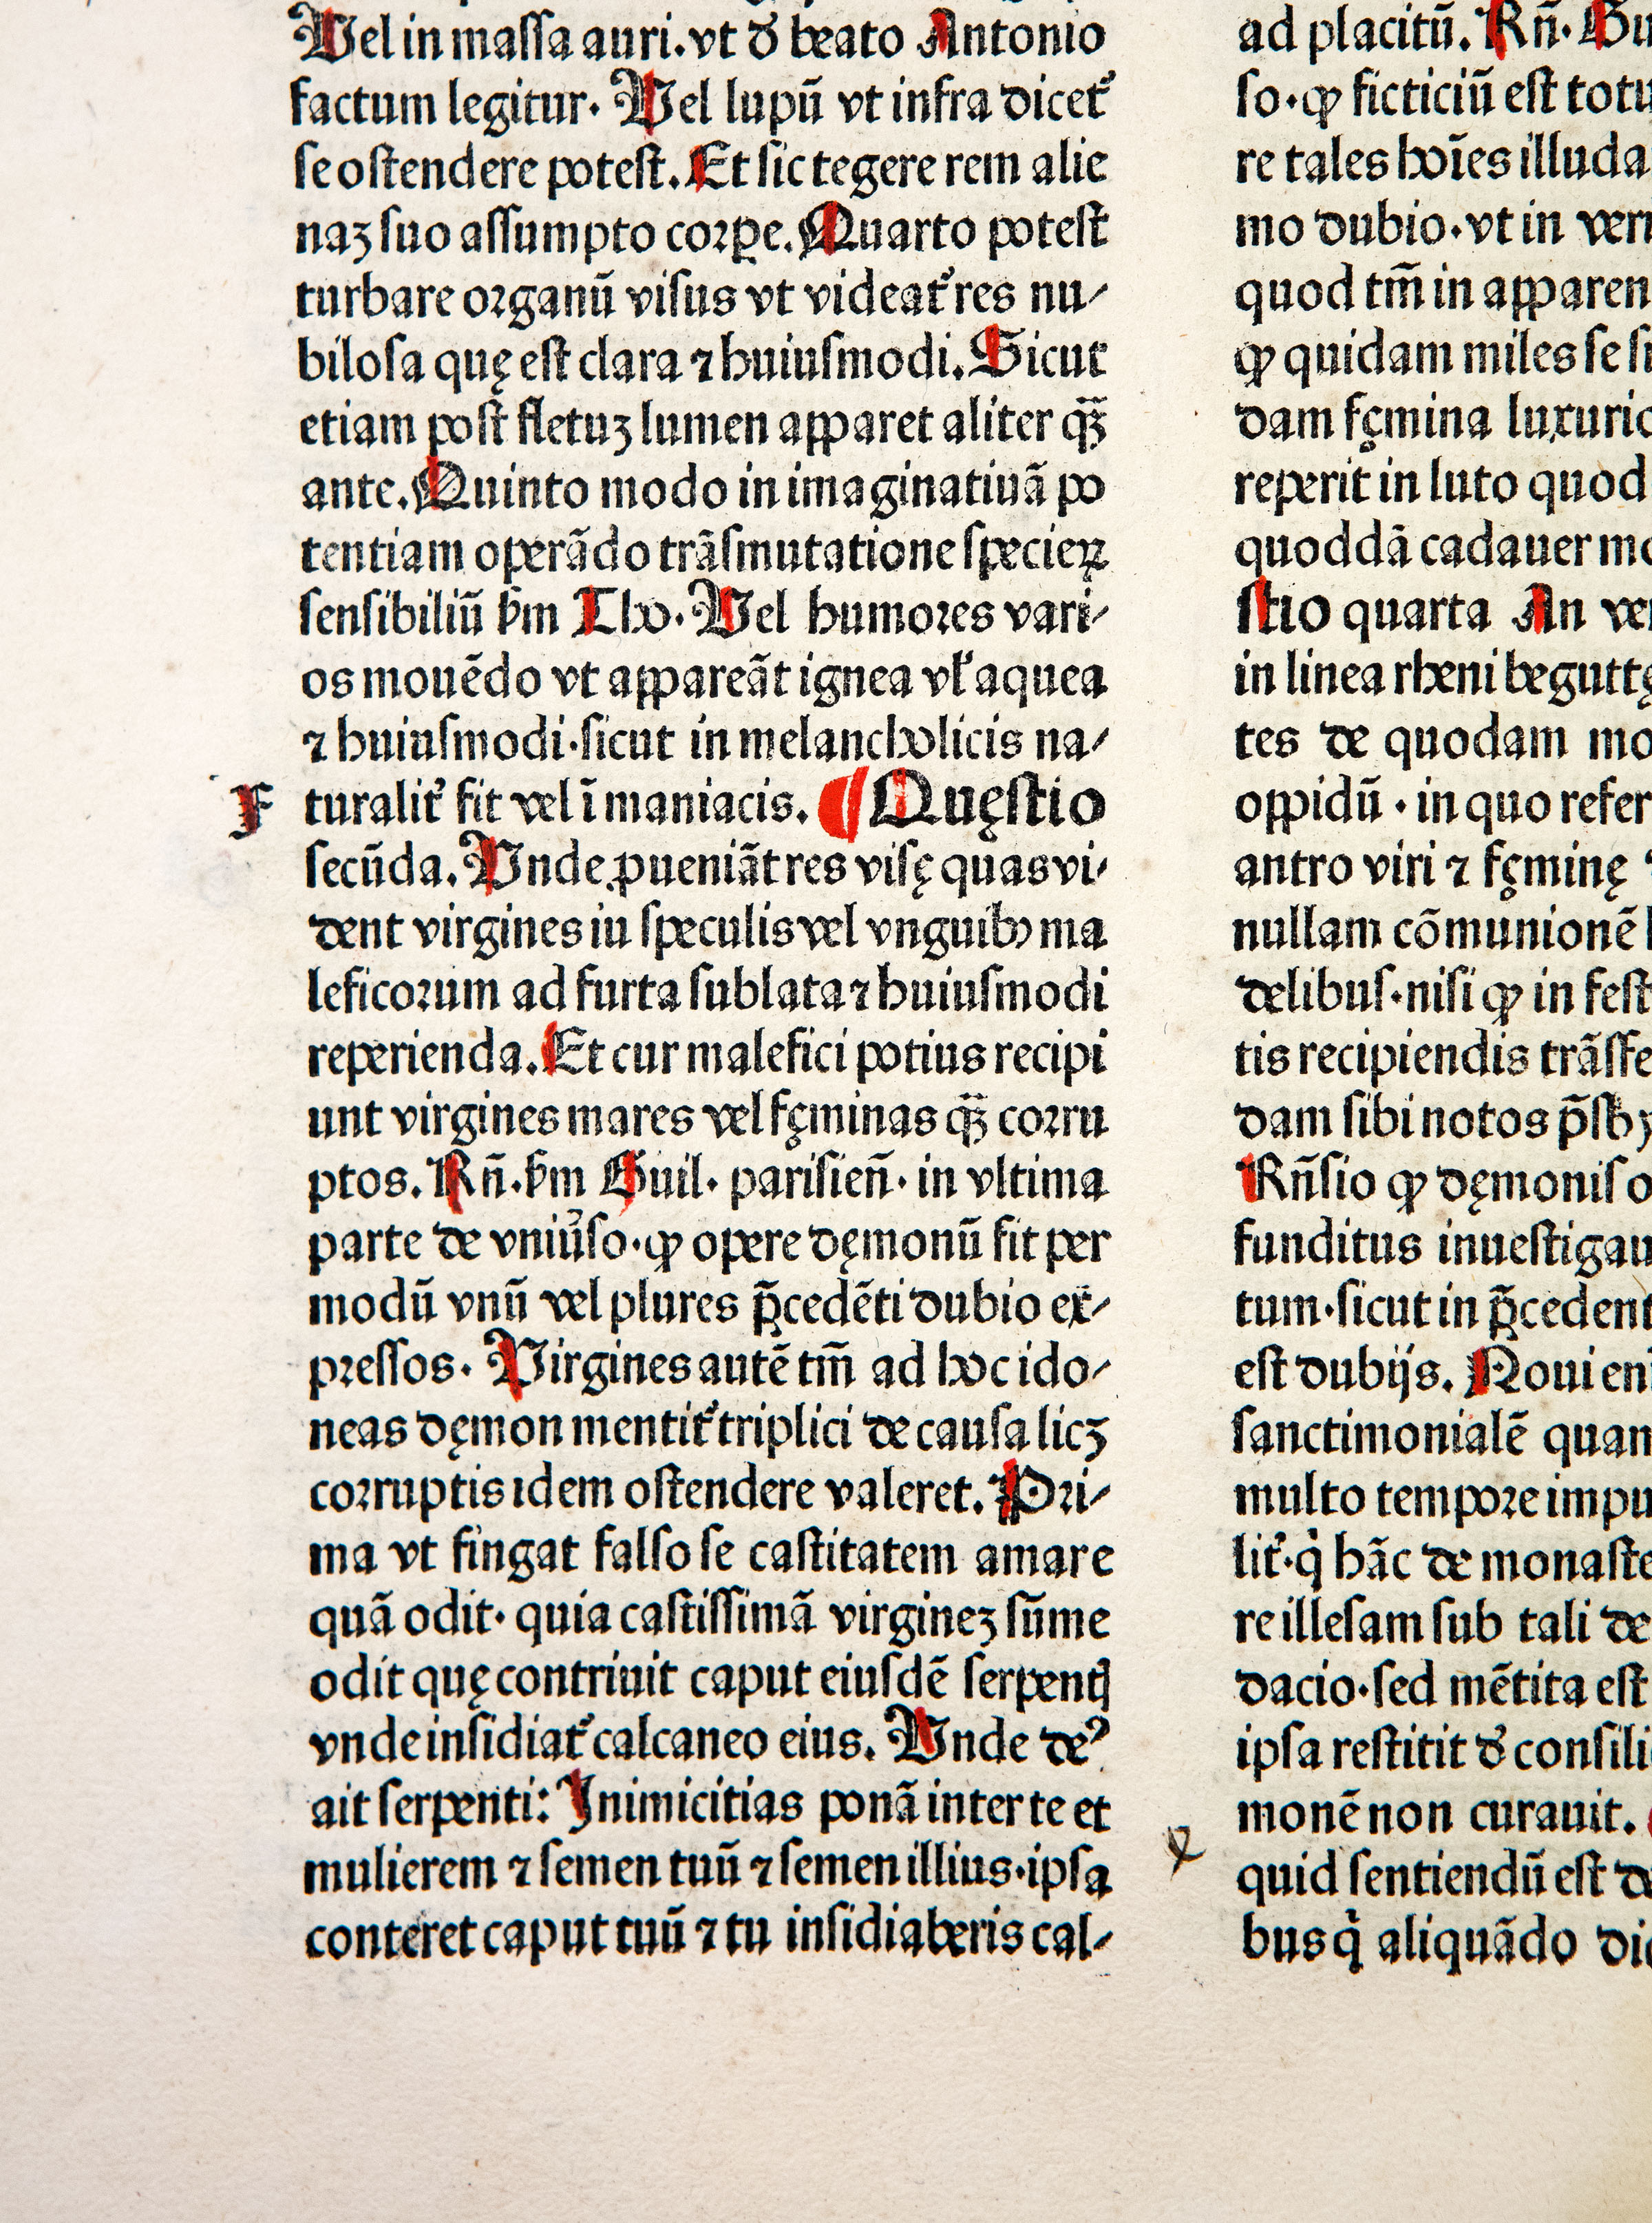 Vel in maſſa auri. vt đ beato Antonio
factum legitur. Vel lupū vt infra dicet᷑
ſe oſtendere poteſt. Et ſic tegere rem alie
naʒ ſuo aſſumpto coꝛꝑe. Quarto poteſt
turbare oꝛganū viſus vt videat᷑ res nu⸗
biloſa quę eſt clara ⁊ huiuſmodi. Sicut
etiam poſt fletuʒ lumen apparet aliter qʒ̃
ante. Quinto modo in imaginatiuā po
tentiam operādo trāſmutatione ſpecieꝝ
ſenſibiliū ẜm Tho. Vel humoꝛes vari⸗
os mouēdo vt appareāt ignea vl̓ aquea
⁊ huiuſmodi·ſicut in melancholicis na⸗
F turalit᷑ fit vel ī maniacis. ¶ Quęſtio
ſecūda. Vnde ꝓueniāt res viſę quas vi⸗
dent virgines iu ſpeculis vel vnguibꝰ ma
leficoꝛum ad furta ſublata ⁊ huiuſmodi
reperienda. Et cur malefici potius recipi
unt virgines mares vel fęminas qʒ̃ coꝛru
ptos. Rñ. ẜm Guil. pariſieñ. in vltima
parte de vniu᷑ſo·ꝙ opere dęmonū fit per
modū vnū vel plures p̄cedēti dubio ex⸗
pꝛeſſos. Virgines autē tm̄ ad hoc ido⸗
neas dęmon mentit᷑ triplici de cauſa licʒ
coꝛruptis idem oſtendere valeret. Pꝛi⸗
ma vt fingat falſo ſe caſtitatem amare
quā odit· quia caſtiſſimā virgineʒ ſūme
odit quę contriuit caput eiuſdē ſerpentꝭ
vnde inſidiat᷑ calcaneo eius. Vnde deꝰ
ait ſerpenti: Inimicitias ponā inter te et
mulierem ⁊ ſemen tuū ⁊ ſemen illius·ipſa
conteret caput tuū ⁊ tu inſidiaberis cal⸗
ad placitū. Rñ. Gu
ſo·ꝙ ficticiū eſt totu
re tales hoīes illuda
mo dubio·vt in ver
quod tm̄ in apparen
ꝙ quidam miles ſe ſ
dam fęmina luxuri
reperit in luto quod
quoddā cadauer mo
ſtio quarta An ve
in linea rheni beguttę
tes de quodam mo
oppidū · in quo refer
antro viri ⁊ fęminę
nullam cōmunionē
delibuſ·niſi ꝙ in feſt
tis recipiendis trāſfe
dam ſibi notos p̄ſby
Rñſio ꝙ dęmoniſ o
funditus inueſtigau
tum·ſicut in p̄cedent
eſt dubijs. Noui en
ſanctimonialē quan
multo tempoꝛe impu
lit᷑·q̇ hāc de monaſte
re illeſam ſub tali de
dacio·ſed mētita eſt
ipſa reſtitit đ conſili
monē non curauit.
quid ſentiendū eſt d
bus q̇ aliquādo di